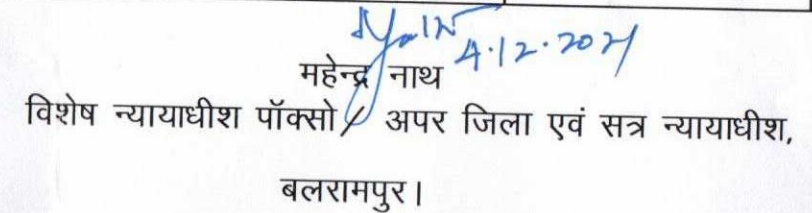 4.12.2021
महेन्द्र नाथ
विशेष न्यायाधीश पॉक्सो/ अपर जिला एवं सत्र न्यायाधीश,
बलरामपुर।